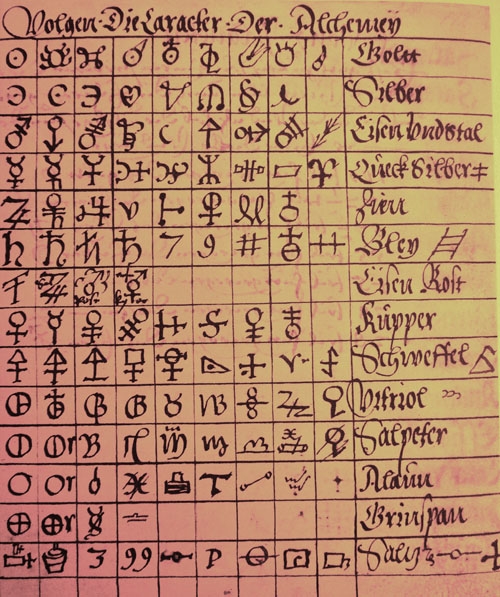 Volgen Die Caracter Der Alchemey
Goltt
Silber
Eisen Vndstal
Queck Silber
Zien
Bley
Eisen Rost
Kupper
Schweffel
Vitriol
or Salpeter
or Alaun
or Grinspan
3 99 P Saltz